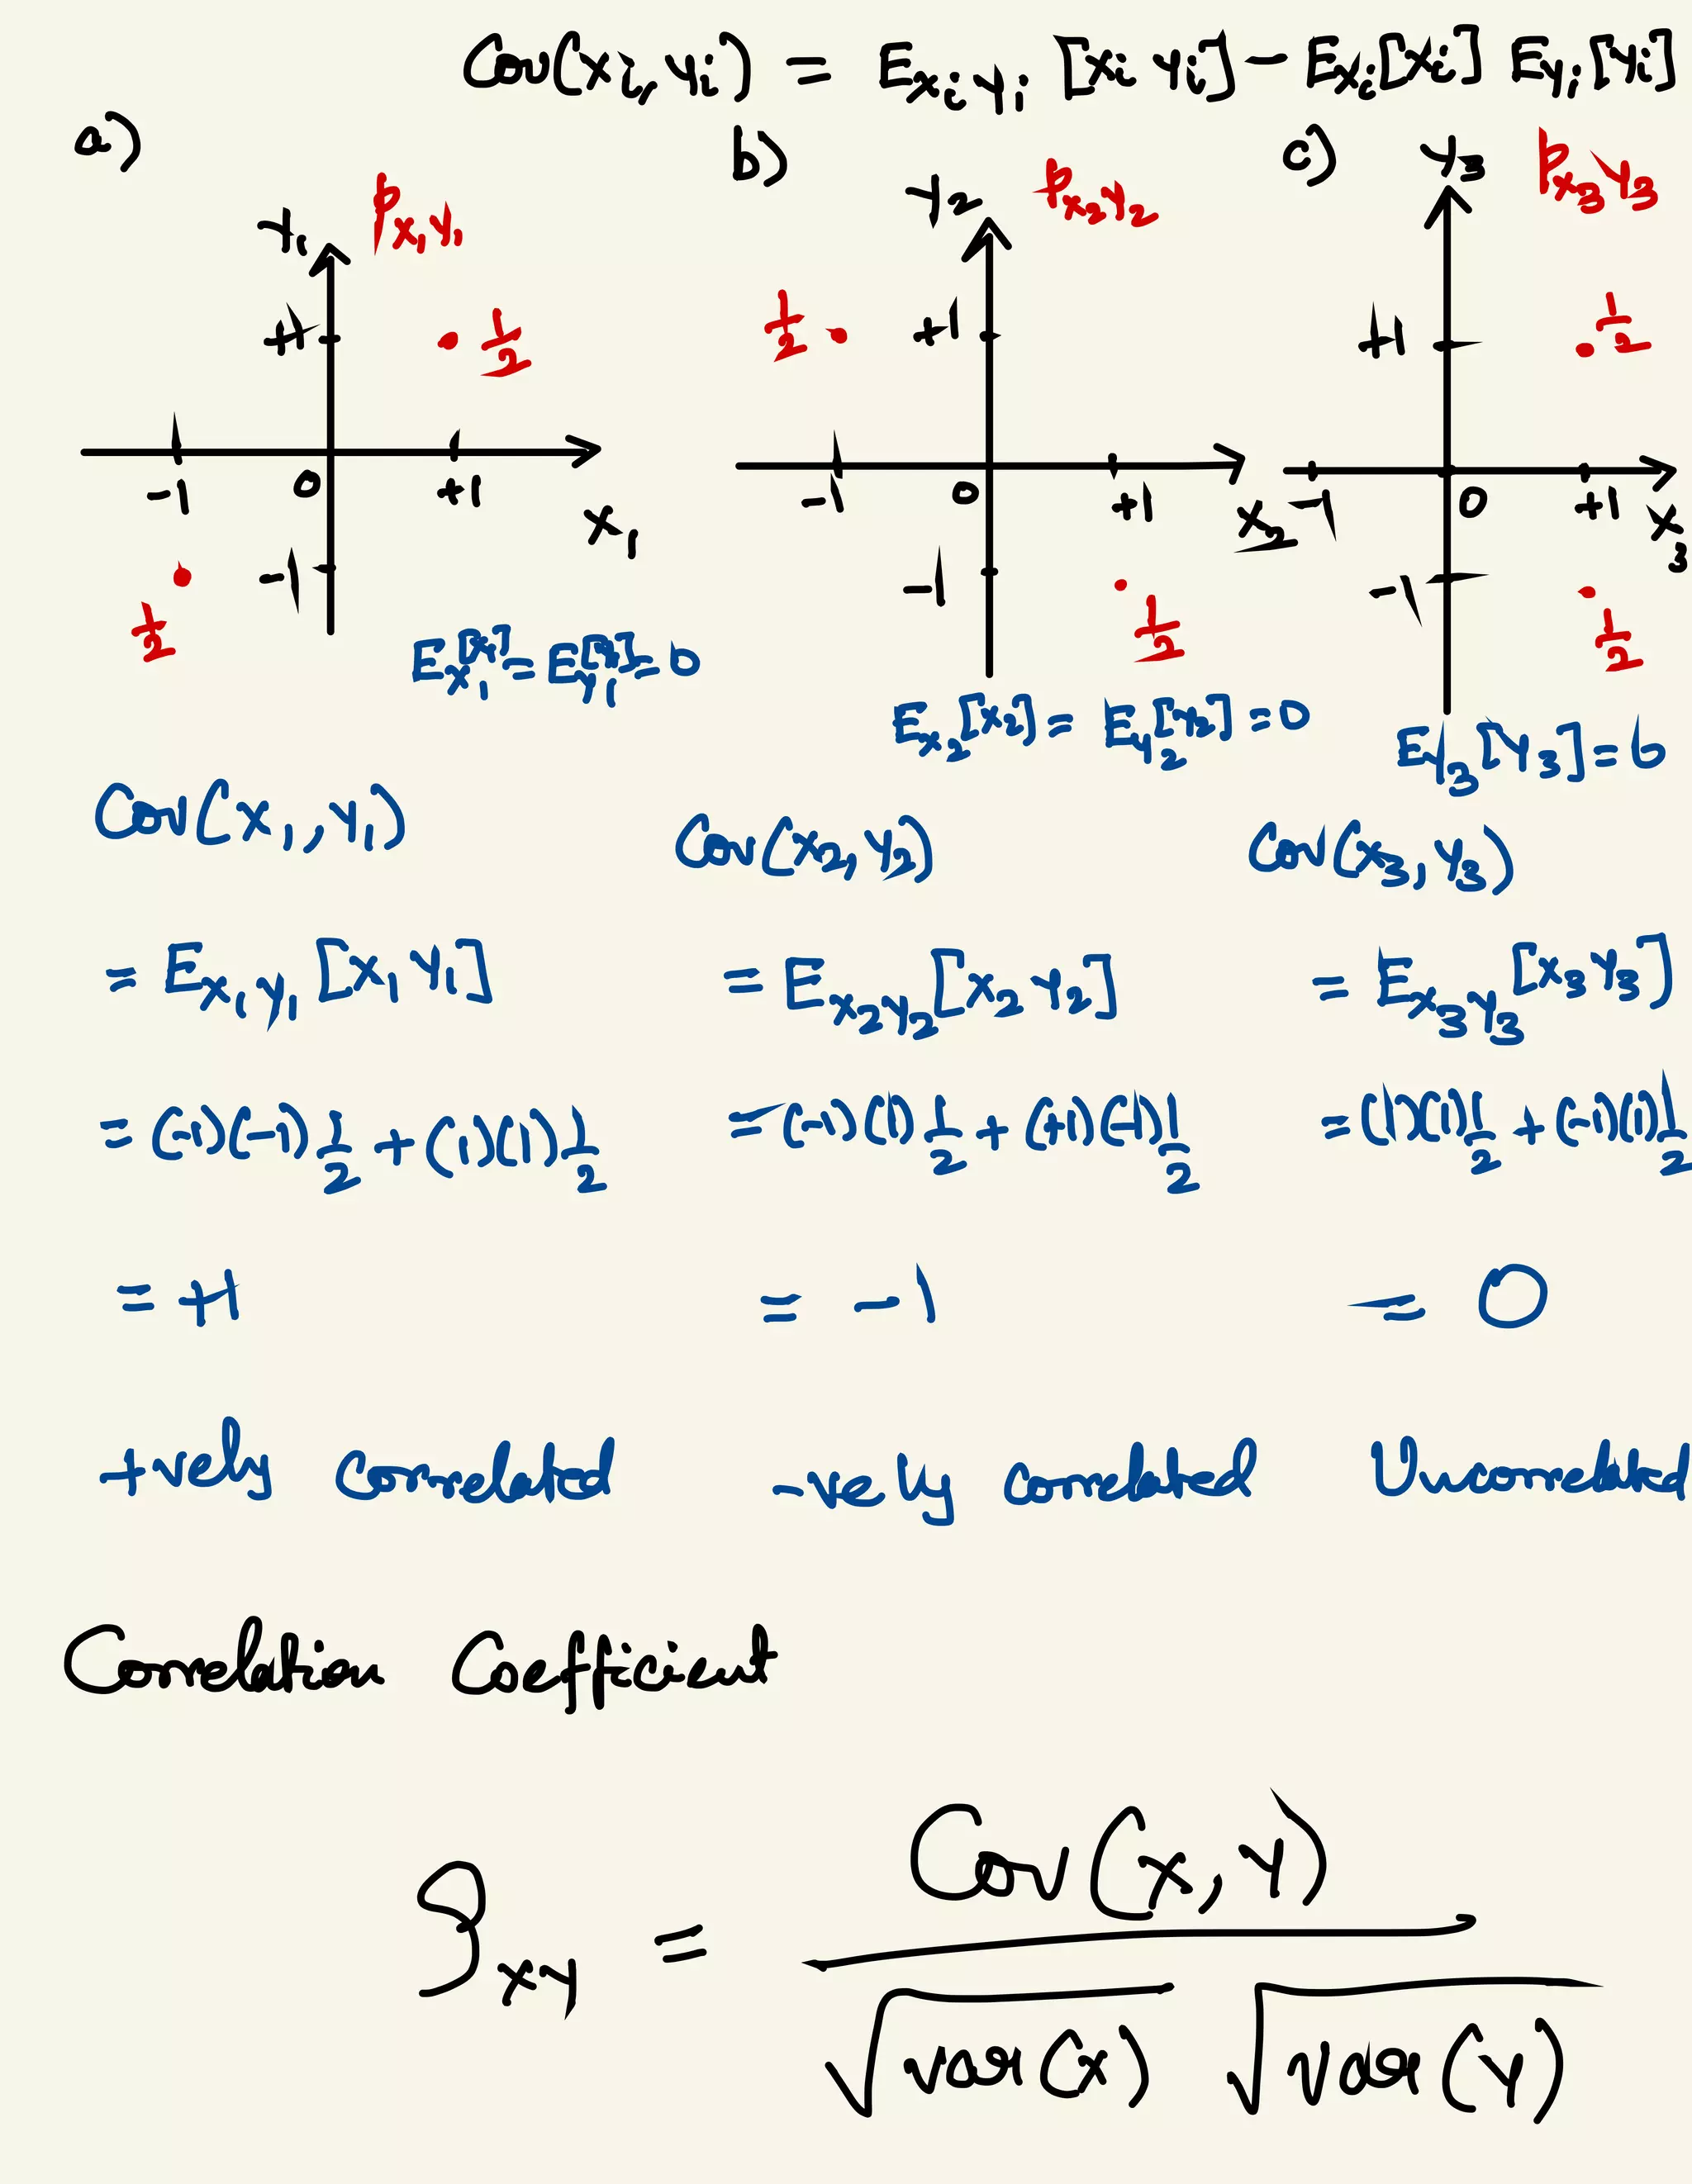 Cov(Xi, Yi) = E_XiYi [Xi Yi] - E_Xi[Xi] E_Yi[Yi]
a)
Y₁ P_X₁Y₁
+1 1/2
-1 0 +1
X₁
-1
1/2
E_X₁[X₁] = E_Y₁[Y₁] = 0
b)
Y₂ P_X₂Y₂
1/2 +1
-1 0 +1 X₂
-1
1/2
E_X₂[X₂] = E_Y₂[Y₂] = 0
c)
Y₃ P_X₃Y₃
+1 1/2
-1 0 +1 X₃
-1
1/2
E_Y₃[Y₃] = 0
Cov(X₁, Y₁)
= E_X₁Y₁[X₁ Y₁]
= (-1)(-1) 1/2 + (1)(1) 1/2
= +1
+vely correlated
Cov(X₂, Y₂)
= E_X₂Y₂[X₂ Y₂]
= (-1)(1) 1/2 + (+1)(-1) 1/2
= -1
-vely correlated
Cov(X₃, Y₃)
= E_X₃Y₃[X₃ Y₃]
= (1)(1) 1/2 + (-1)(1) 1/2
= 0
Uncorrelated
Correlation Coefficient
ρ_XY = Cov(X, Y) / √var(X) √var(Y)